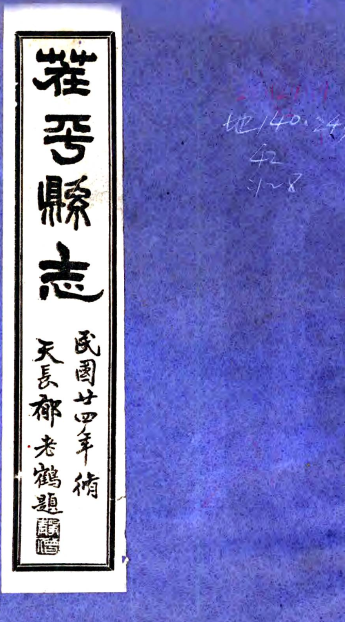 茌平縣志
民國廿四年脩
天長郁老鶴題
地140.24
42
:1~8